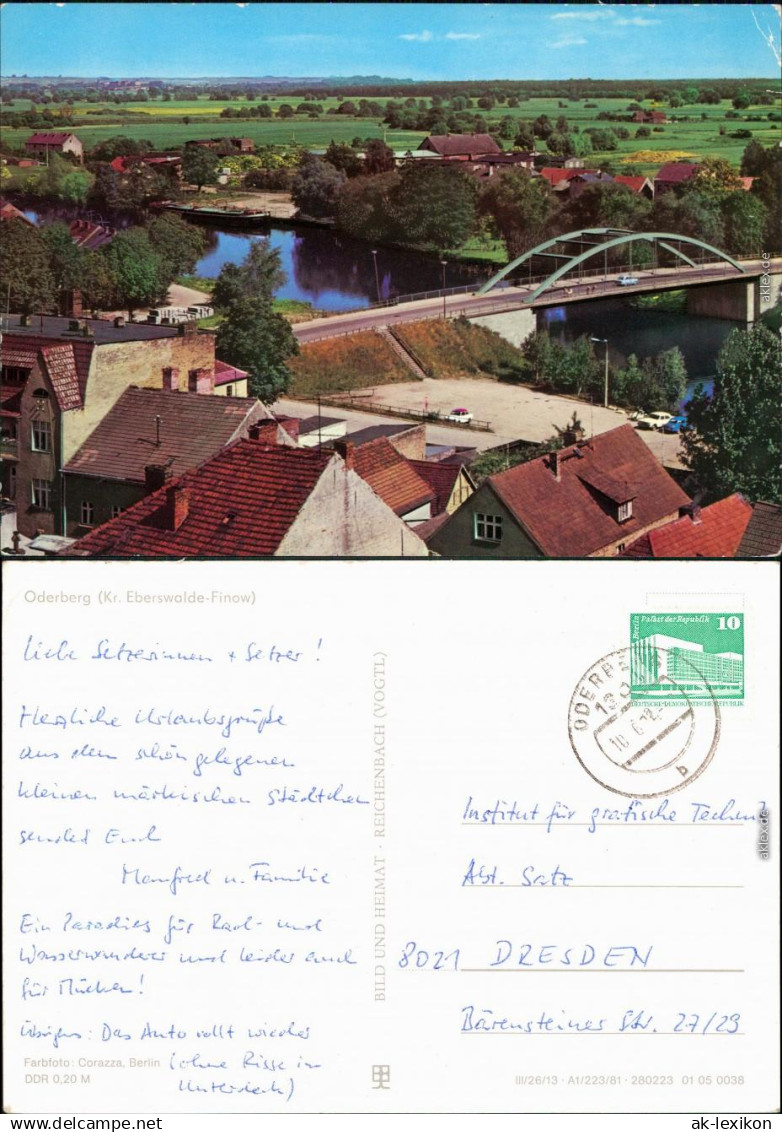 Oderberg (Kr. Eberswalde-Finow)
Liebe Setzerinnen + Setzer!
Herzliche Urlaubsgrüße
aus dem schön gelegenen
kleinen märkischen Städtchen
sendet Euch
Manfred u. Familie
Ein Paradies für Rad- und
Wasserwanderer und leider auch
für Mücken!
Übrigens: Das Auto rollt wieder
(ohne Risse im
Unterdeck)
Farbfoto: Corazza, Berlin
DDR 0,20 M
BILD UND HEIMAT · REICHENBACH (VOGTL)
Berlin Palast der Republik 10
DEUTSCHE DEMOKRATISCHE REPUBLIK
ODERBERG
b
Institut für grafische Technik
Abt. Satz
8021 DRESDEN
Bärensteiner Str. 27/29
III/26/13 · A1/223/81 · 280223 01 05 0038
aklex.de
aklex.de
www.ak-ansichtskarten.de
ak-lexikon